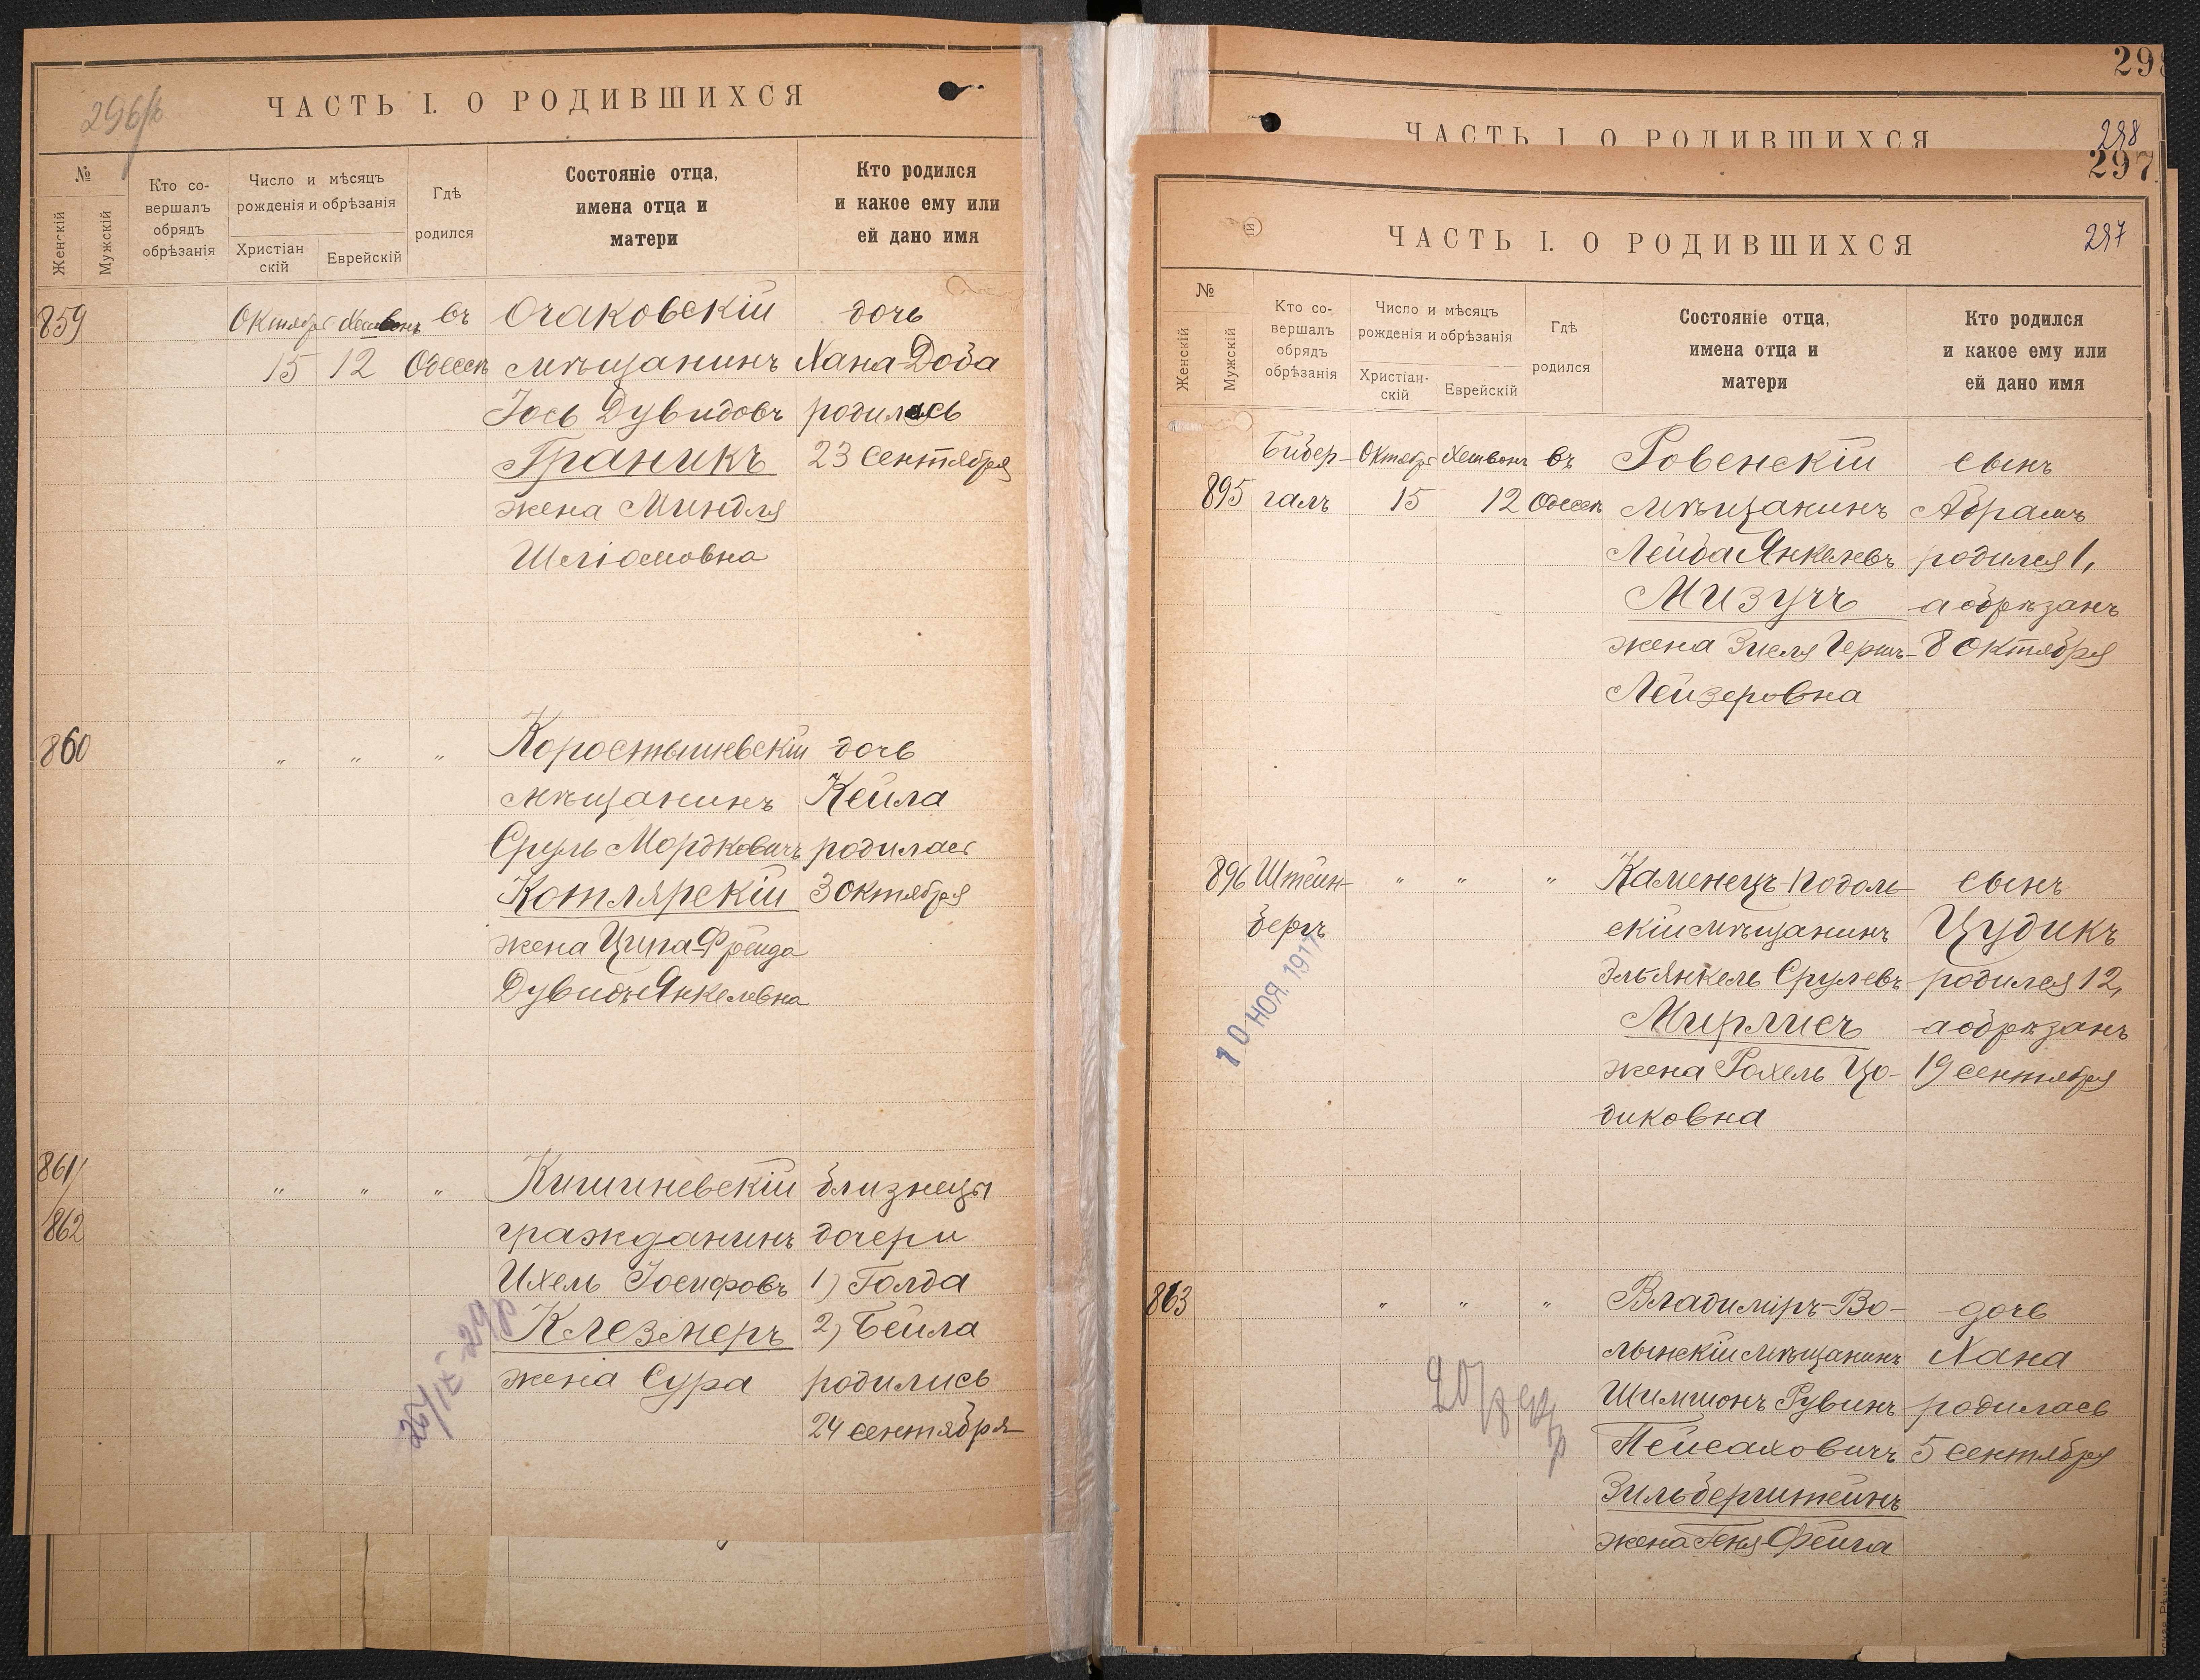 296/b
ЧАСТЬ I. О РОДИВШИХСЯ
№
Женскій
Мужскій
Кто со-
вершалъ
обрядъ
обрѣзанія
Число и мѣсяцъ
рожденія и обрѣзанія
Христіан
скій
Еврейскій
Гдѣ
родился
Состояніе отца,
имена отца и
матери
Кто родился
и какое ему или
ей дано имя
859 Октября Хешвонъ въ Очаковскій дочь
15 12 Одессѣ мѣщанинъ Хана-Доба
Іось Дувидовъ родилась
Граникъ 23 сентября
жена Миндля
Шліомовна
860 " " " Коростышевскій дочь
мѣщанинъ Кейла
Сруль Мордковичъ родилась
Котлярскій 3 октября
жена Ципа-Фрейда
Дувидъ-Янкелевна
861/ " " " Кишиневскій близнецы
/862 гражданинъ дочери
Ихель Іосифовъ 1) Голда
Клезмеръ 2) Бейла
жена Сура родились
24 сентября
298
ЧАСТЬ I. О РОДИВШИХСЯ
298
297
ЧАСТЬ I. О РОДИВШИХСЯ
297
№
Женскій
Мужскій
Кто со-
вершалъ
обрядъ
обрѣзанія
Число и мѣсяцъ
рожденія и обрѣзанія
Христіан-
скій
Еврейскій
Гдѣ
родился
Состояніе отца,
имена отца и
матери
Кто родился
и какое ему или
ей дано имя
Бибер- Октября Хешвонъ въ Ровенскій сынъ
895 галъ 15 12 Одессѣ мѣщанинъ Абрамъ
Лейба Янкелевъ родился 1,
Мизучъ а обрѣзанъ
жена Зисля Гершъ- 8 октября
Лейзеровна
896 Штейн- " " " Каменецъ Подоль- сынъ
бергъ скій мѣщанинъ Цудикъ
Эль-Янкель Срулевъ родился 12,
Мирлисъ а обрѣзанъ
жена Рохель Цо- 19 сентября
диковна
10 НОЯ. 1917
863 " " " Владиміръ-Во- дочь
лынскій мѣщанинъ Хана
Шимшонъ Рувинъ родилась
Пейсаховичъ 5 сентября
Зильберштейнъ
жена Геня-Фейга